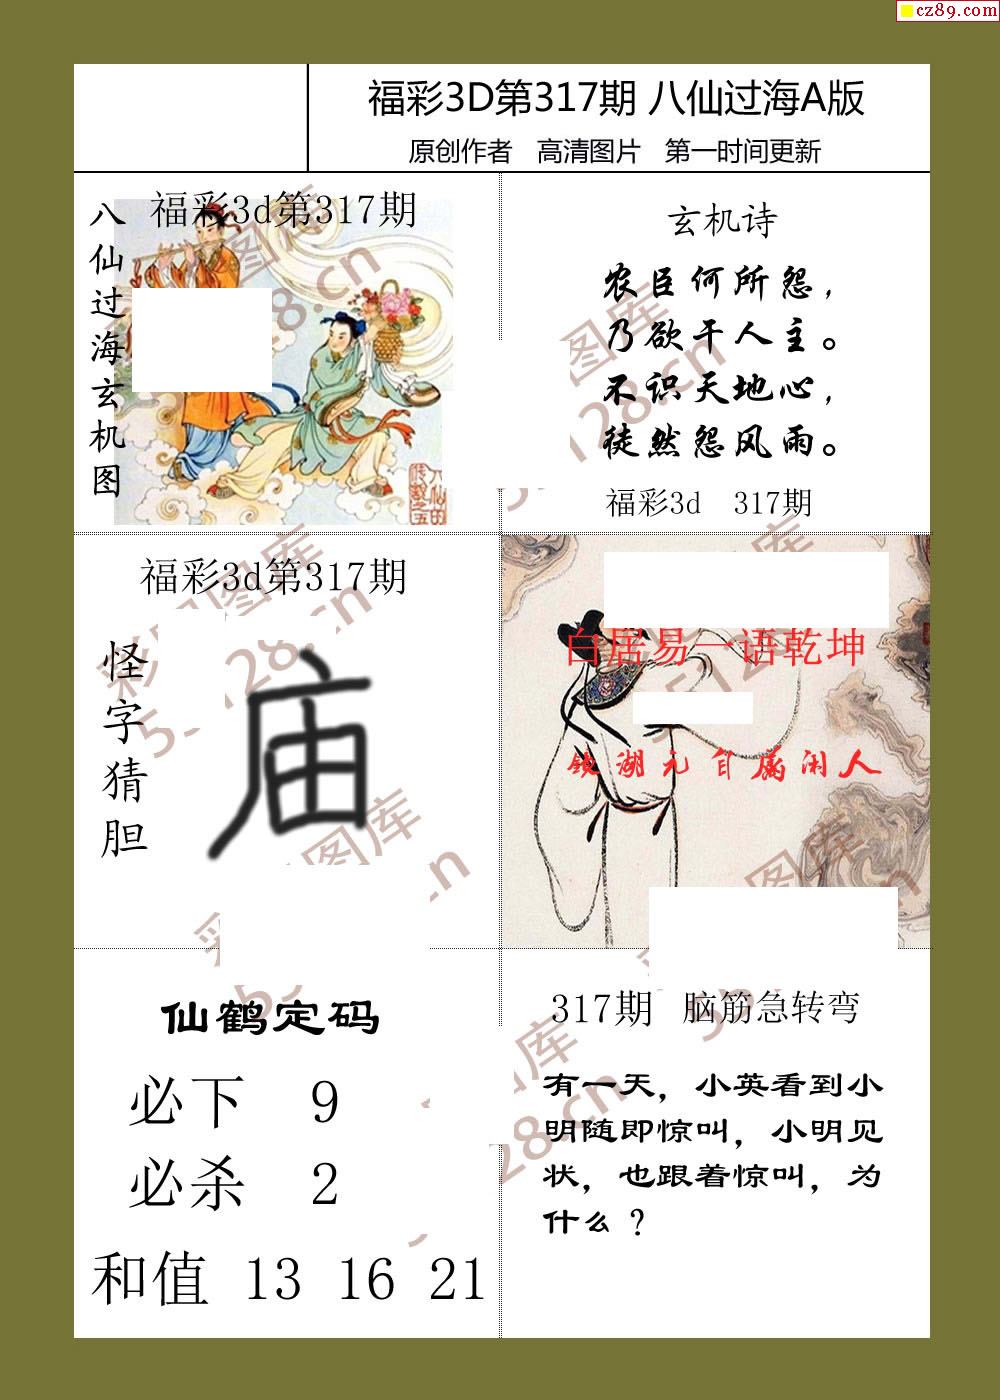 cz89.com
福彩3D第317期 八仙过海A版
原创作者 高清图片 第一时间更新
福彩3d第317期
八仙过海玄机图
玄机诗
农臣何所怨，
乃欲干人主。
不识天地心，
徒然怨风雨。
福彩3d 317期
福彩3d第317期
怪字猜胆
庙
白居易一语乾坤
镜湖元自属闲人
仙鹤定码
必下 9
必杀 2
和值 13 16 21
317期 脑筋急转弯
有一天，小英看到小
明随即惊叫，小明见
状，也跟着惊叫，为
什么？